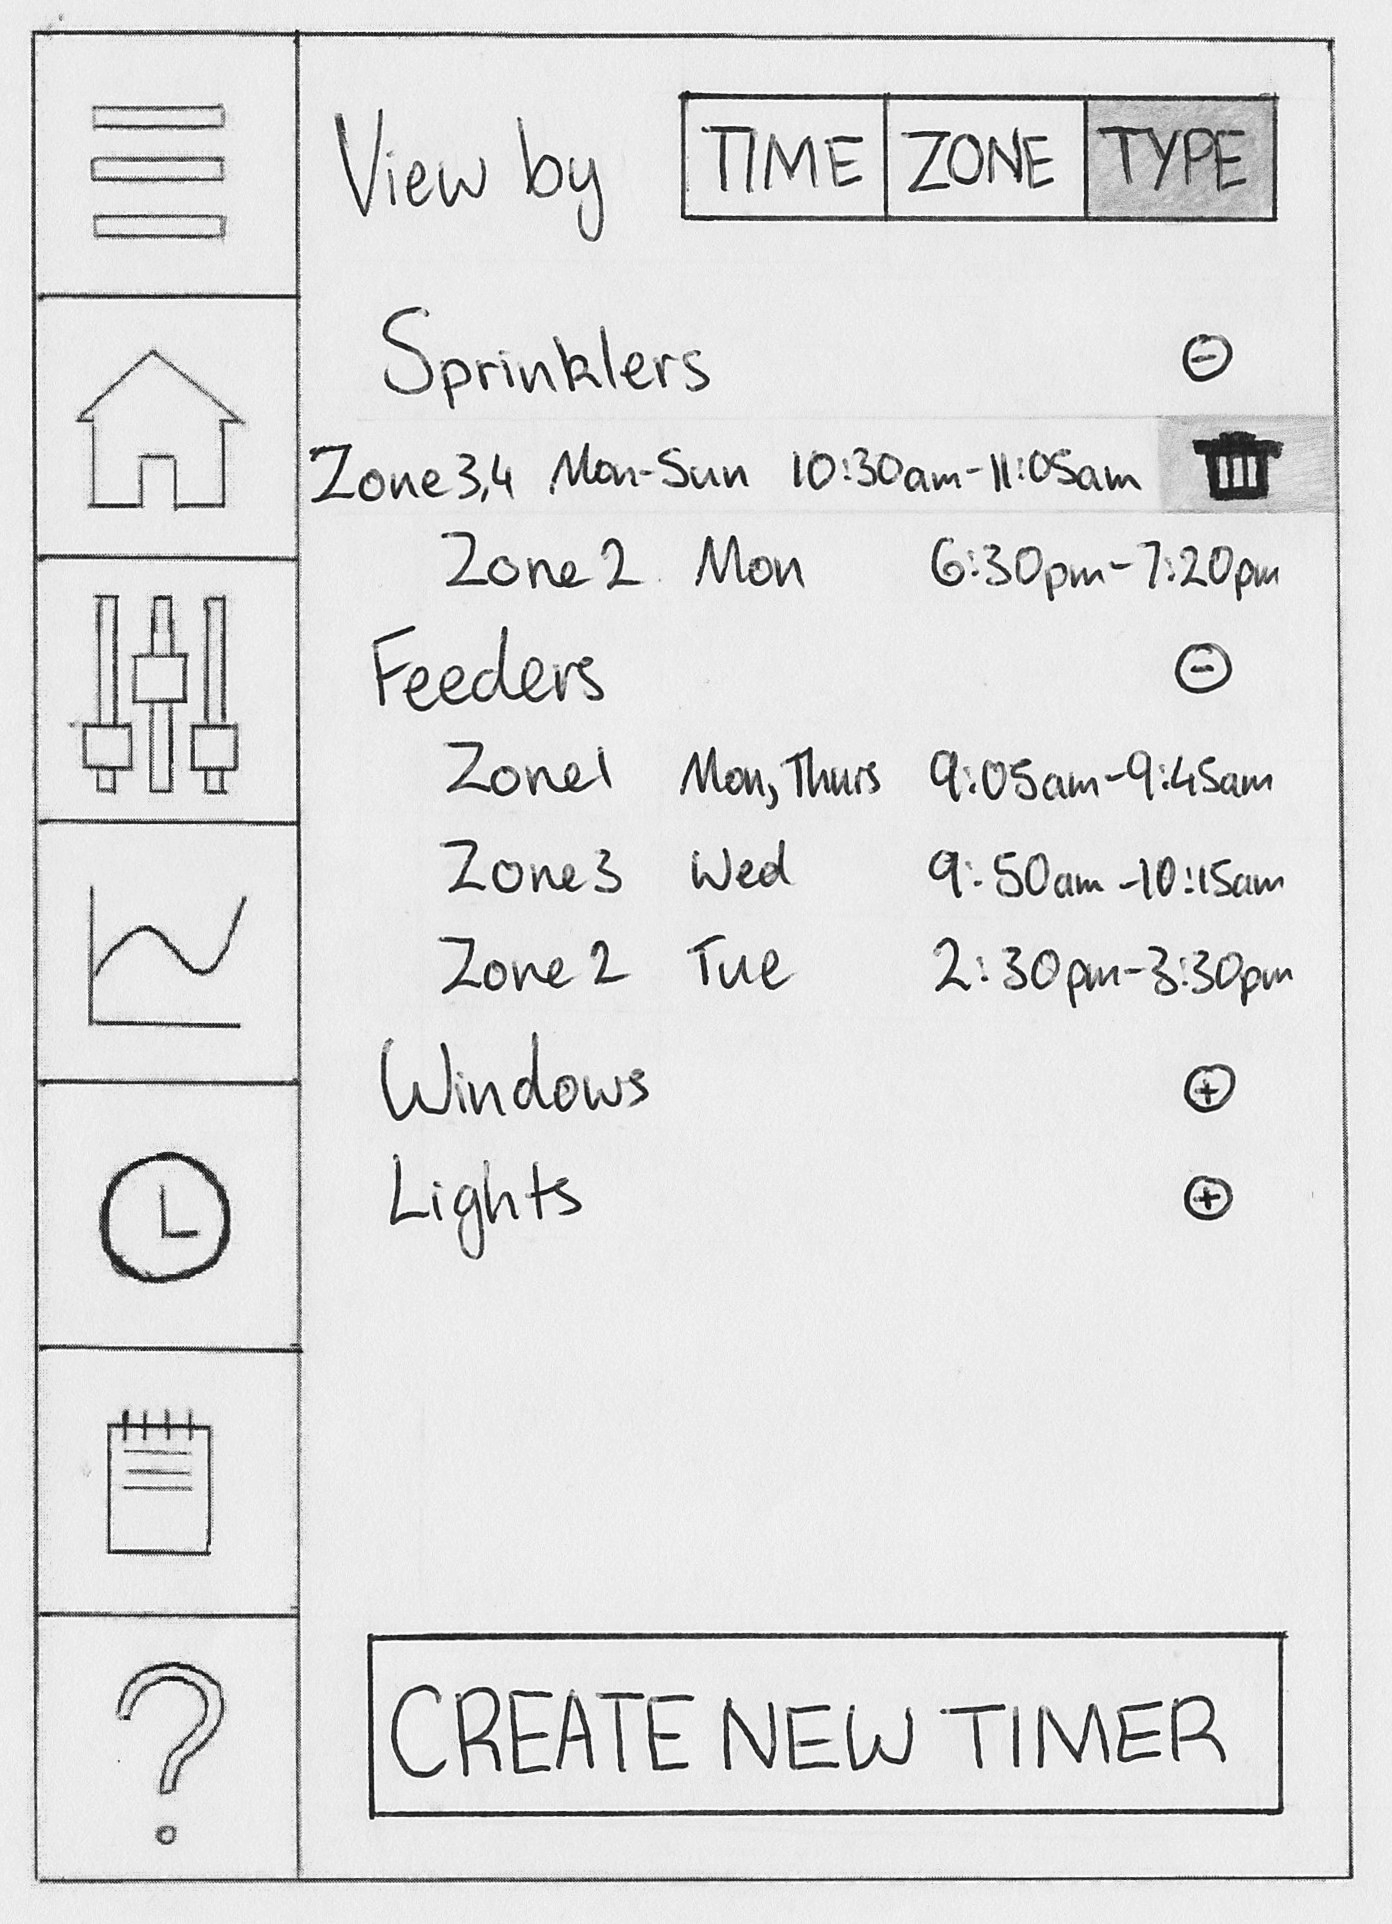 View by TIME ZONE TYPE
Sprinklers
Zone 3,4 Mon-Sun 10:30am-11:05am
Zone 2 Mon 6:30pm-7:20pm
Feeders
Zone 1 Mon, Thurs 9:05am-9:45am
Zone 3 Wed 9:50am-10:15am
Zone 2 Tue 2:30pm-3:30pm
Windows
Lights
CREATE NEW TIMER